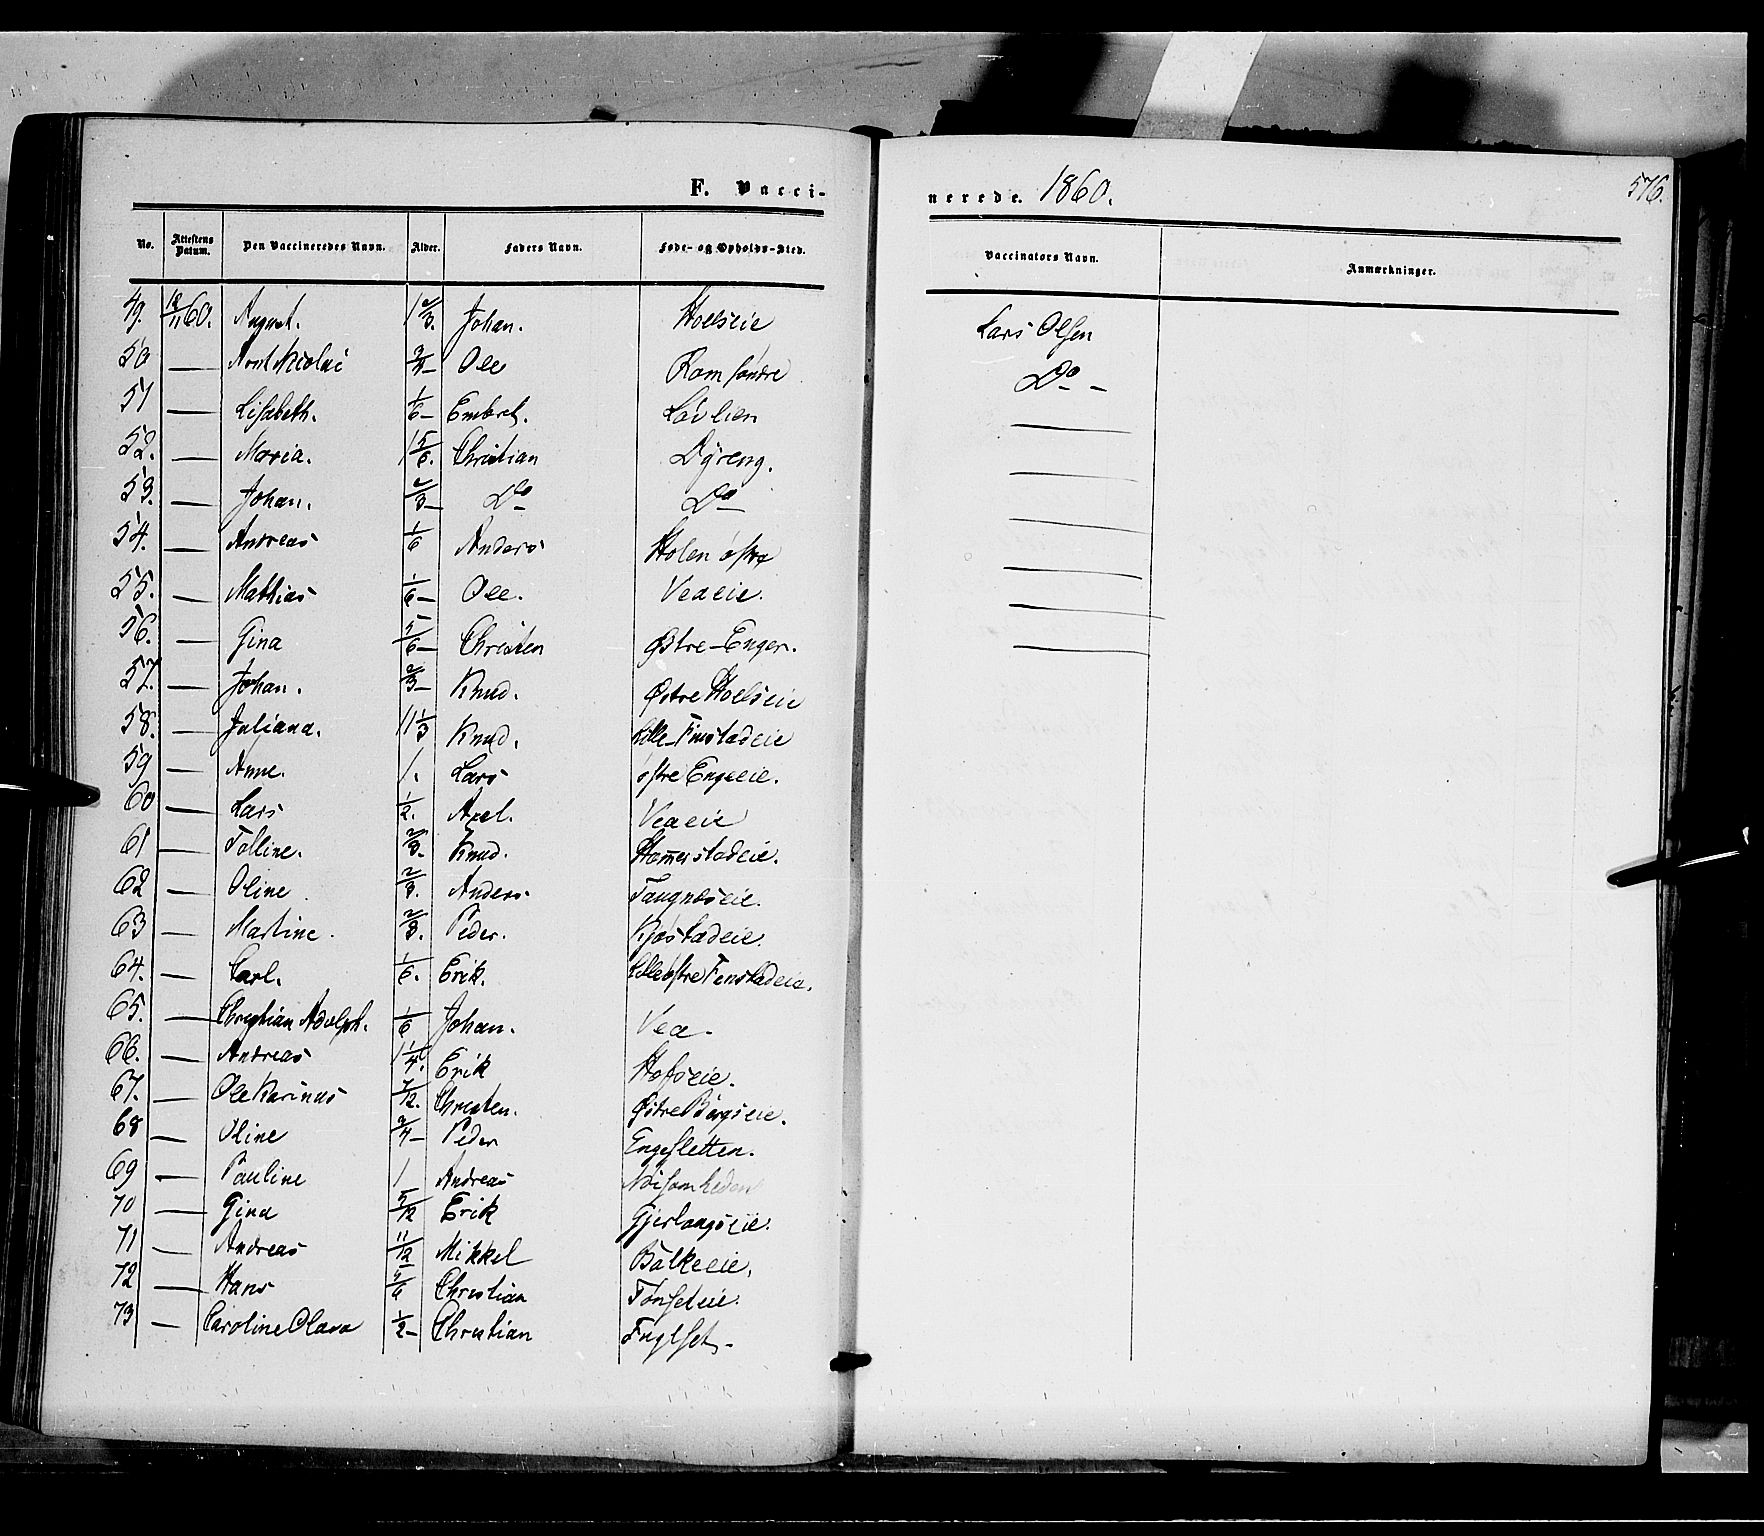 F. Vacci-
nerede. 1860.
576.
No. Attestens Datum. Den Vaccineredes Navn. Alder. Faders Navn. Føde- og Opholds-Sted. Vaccinators Navn. Anmærkninger.
49. 18/11 60. August. 1 2/3. Johan. Hoelseie Lars Olsen
50 — Arnt Nicolai 3/4 — Ole Ram søndre Do —
51 — Lisabeth. 1/6 — Embret. Løvlien —
52. — Maria. 1 5/6. Christian Dÿreng. —
53. — Johan. 2/3 — Do Do —
54. — Andreas 1/6 Anders Holen østre —
55. — Mathias 1/6 — Ole. Veaeie. —
56. — Gina 5/6 — Christen Østre-Enger. —
57. — Johan. 2/3 — Knud. Østre Hoelseie
58. — Juliana. 11 1/3 Knud. Lille-Finstadeie
59 — Anne. 1. Lars østre Engereie.
60 — Lars 1/2. Axel. Veaeie
61 — Tolline. 2/3. Knud. Ham̄erstadeie.
62 — Oline 2/3. Anders Tangnæseie.
63 — Martine. 2/3. Peder. Kjøstadeie.
64. — Carl. 1/6. Erik. Lille østre Fenstadeie.
65. — Christian Adolph. 1/6 Johan. Vea.
66. — Andreas 1 1/4. Erik Hofseie.
67. — Ole Karinus 7/12. Christen. Østre Børgseie.
68 — Oline 3/4 — Peder Engesletten.
69 — Pauline 1 Andreas Nøisomheden
70 — Gina 5/12 Erik Gjerlaugseie.
71 — Andreas 11/12 Mikkel Balkeeie.
72 — Hans 5/6 Christian Tønseteie.
73 — Caroline Olava 1/2 — Christian Fuglset.